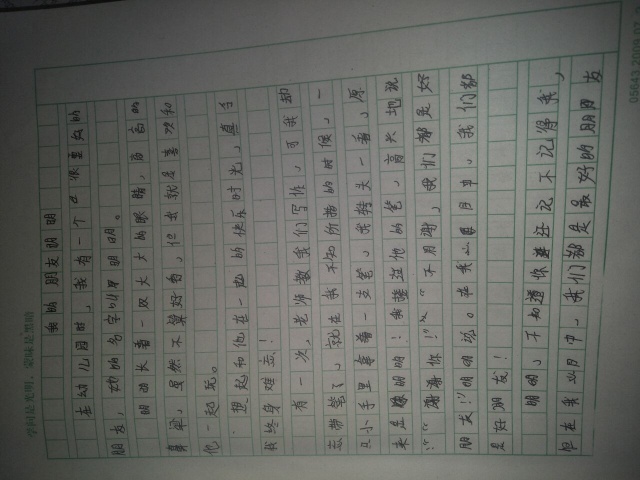 学问是光明，蒙昧是黑暗
我的朋友明明
在幼儿园时，我有一个很要好的
朋友，她的名字叫明明。
明明长着一双大大的眼睛，高高的
鼻梁，虽然不算好看，但我就是喜欢和
他一起玩。
想起和他在一起的快乐时光，真令
我终身难忘！
有一次，老师教我们写作，可我却
忘带笔了，就在我不知所措的时候，一
只小手里拿着一支笔，我转头一看，原
来是明明！我接过他的笔，高兴地说
："谢谢你！""不用谢，我们都是好
朋友！"明明说。在我心目中，我们都
是好朋友！
明明，不知道你还记不记得我，
但在我心目中，我们都是最好的朋友